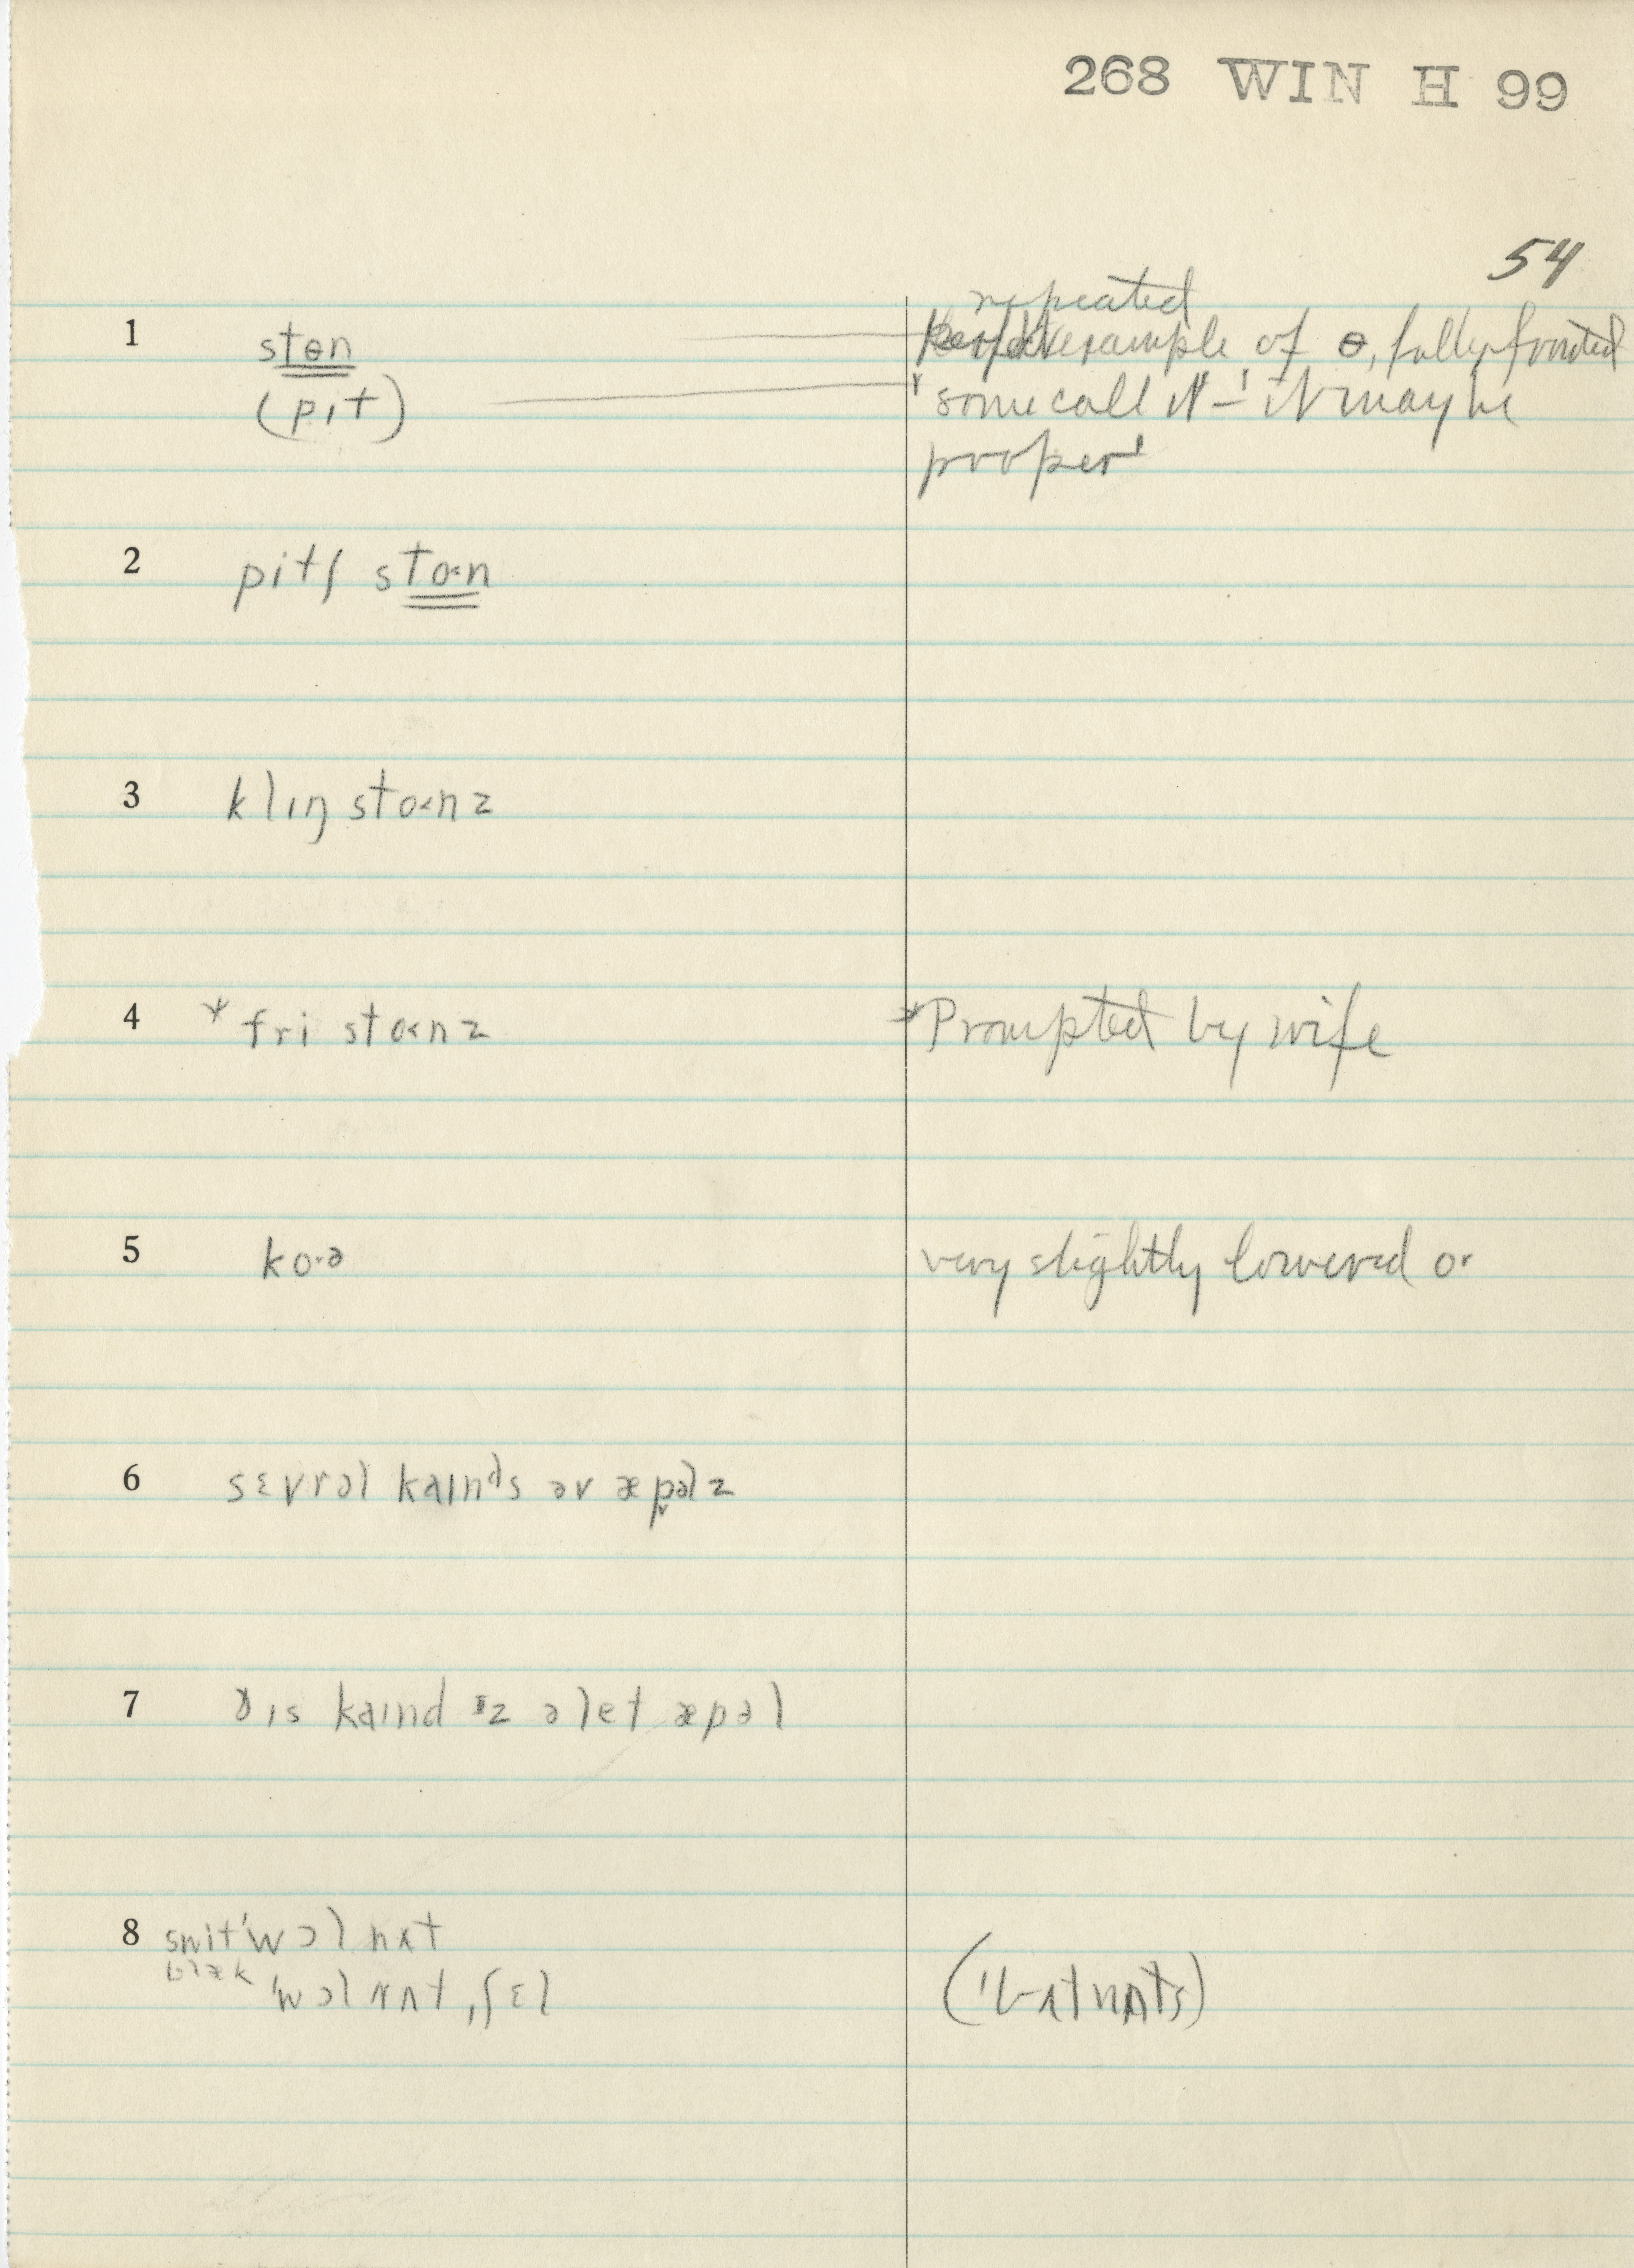 268 WIN H 99
54
repeated
1 stɵn example of ɵ, fully fronted
(pɪt) 'some call it – ' it may be
proper'
2 pitʃ sto˂n
3 klɪŋ sto˂nz
4 * fri sto˂nz * Prompted by wife
5 ko·ə very slightly lowered o·
6 sɛvrəl kaɪnᵈs əv æpəlz
7 ðɪs kaɪnd ɪz ə let æpəl
8 swit'wɔl nʌt
blæk 'wɔl nʌt ˌʃɛl